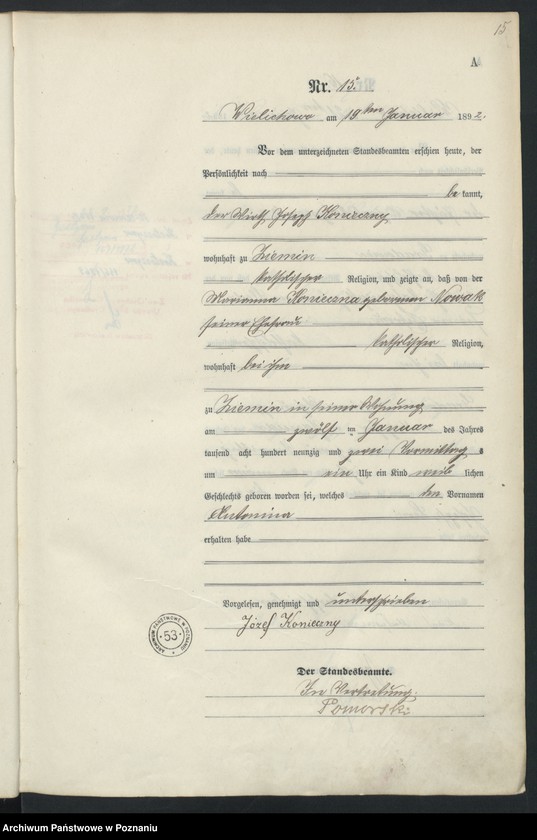 15
A
Nr. 15.
Wielichowo am 19ten Januar 1892.
Vor dem unterzeichneten Standesbeamten erschien heute, der
Persönlichkeit nach
be kannt,
der Wirth Joseph Konieczny
wohnhaft zu Ziemin
katholischer Religion, und zeigte an, daß von der
Marianna Konieczna geborenen Nowak
seiner Ehefrau
katholischer Religion,
wohnhaft bei ihm
zu Ziemin in seiner Wohnung
am zwölf ten Januar des Jahres
tausend acht hundert neunzig und zwei Vormittag s
um ein Uhr ein Kind weib lichen
Geschlechts geboren worden sei, welches den Vornamen
Antonina
erhalten habe
Vorgelesen, genehmigt und unterschrieben
Józef Konieczny
ARCHIWUM PAŃSTWOWE W POZNANIU
53
Der Standesbeamte.
In Vertretung.
Pomorski
Archiwum Państwowe w Poznaniu